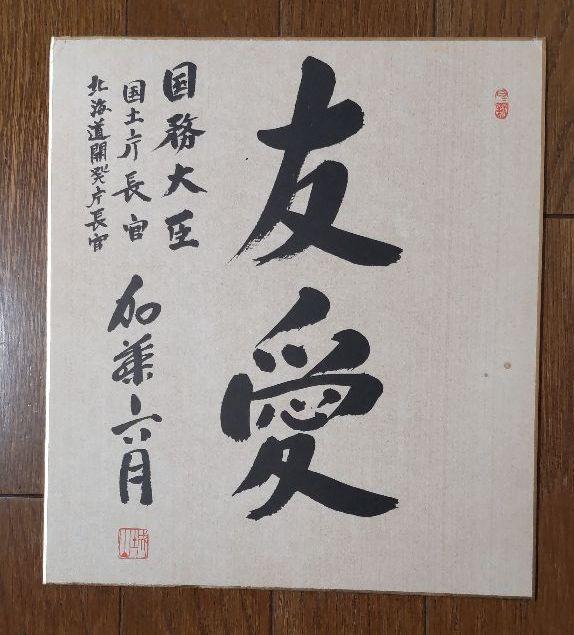 友愛
国務大臣
国土庁長官
北海道開発庁長官
加藤六月